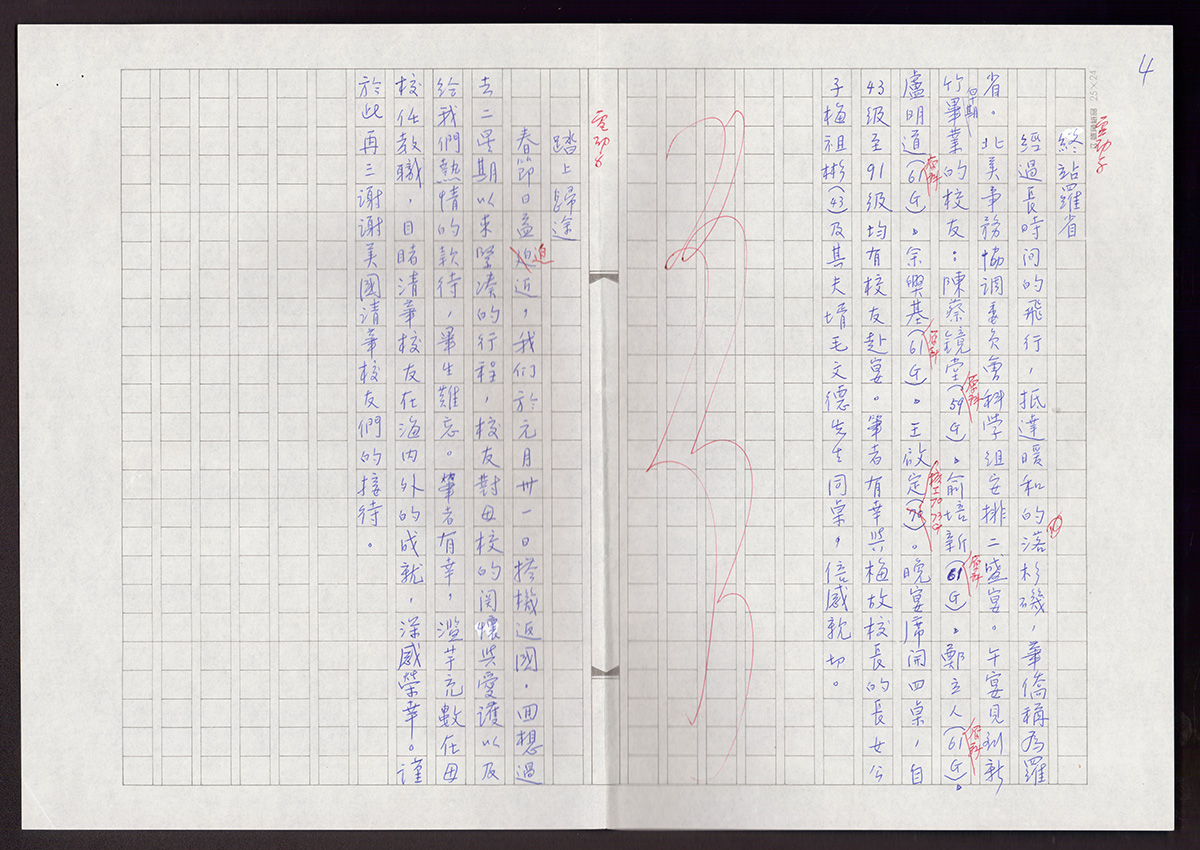 4
25×24
終站羅省
經過長時间的飛行，抵達暖和的洛杉磯，華僑稱為羅
省。北美事務協調委員會科学组安排二盛宴。午宴見到新
竹早期畢業的校友：陳蔡鏡堂(原科59G)。俞培新(原科61G)。鄭立人(原科61G)。
盧明道(原科61G)。余興基(原科61G)。王啟定(核工70 73G)。晚宴席開四桌，自
43級至91級均有校友赴宴。筆者有幸與梅故校長的長女公
子梅祖彬(43)及其夫壻毛文德先生同桌，倍感親切。
踏上歸途
春節日益迫近，我们於元月卅一日搭機返國。回想過
去二星期以來緊湊的行程，校友對母校的関懷與愛護以及
給我們熱情的款待，畢生難忘。筆者有幸，濫芋充數在母
校任教職，目睹清華校友在海内外的成就，深感榮幸。謹
於此再三謝謝美國清華校友們的接待。